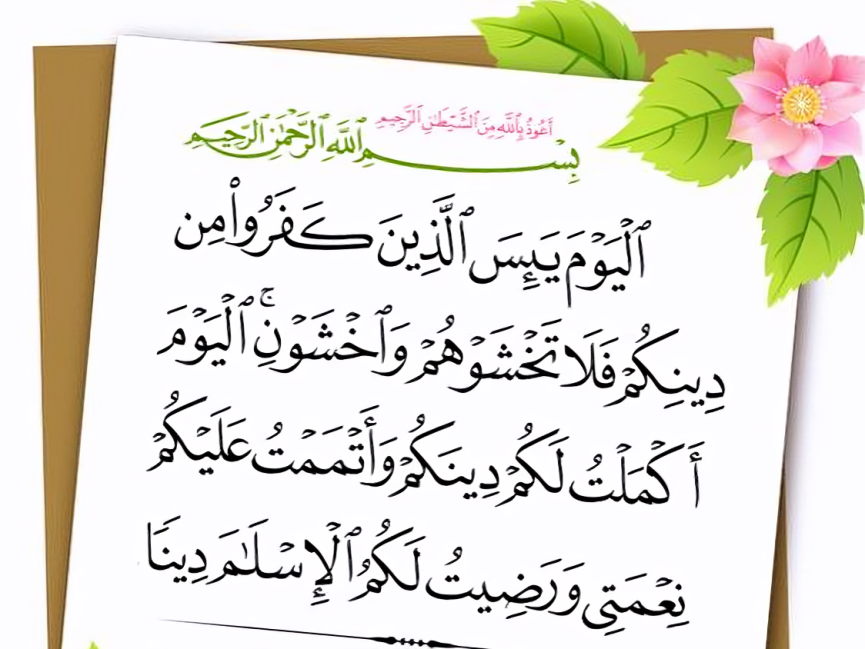 أَعُوذُ بِٱللَّهِ مِنَ ٱلشَّيْطَٰنِ ٱلرَّجِيمِ
بِسْمِ ٱللَّهِ ٱلرَّحْمَٰنِ ٱلرَّحِيمِ
ٱلْيَوْمَ يَئِسَ ٱلَّذِينَ كَفَرُوا۟ مِن
دِينِكُمْ فَلَا تَخْشَوْهُمْ وَٱخْشَوْنِ ۚ ٱلْيَوْمَ
أَكْمَلْتُ لَكُمْ دِينَكُمْ وَأَتْمَمْتُ عَلَيْكُمْ
نِعْمَتِى وَرَضِيتُ لَكُمُ ٱلْإِسْلَٰمَ دِينًا